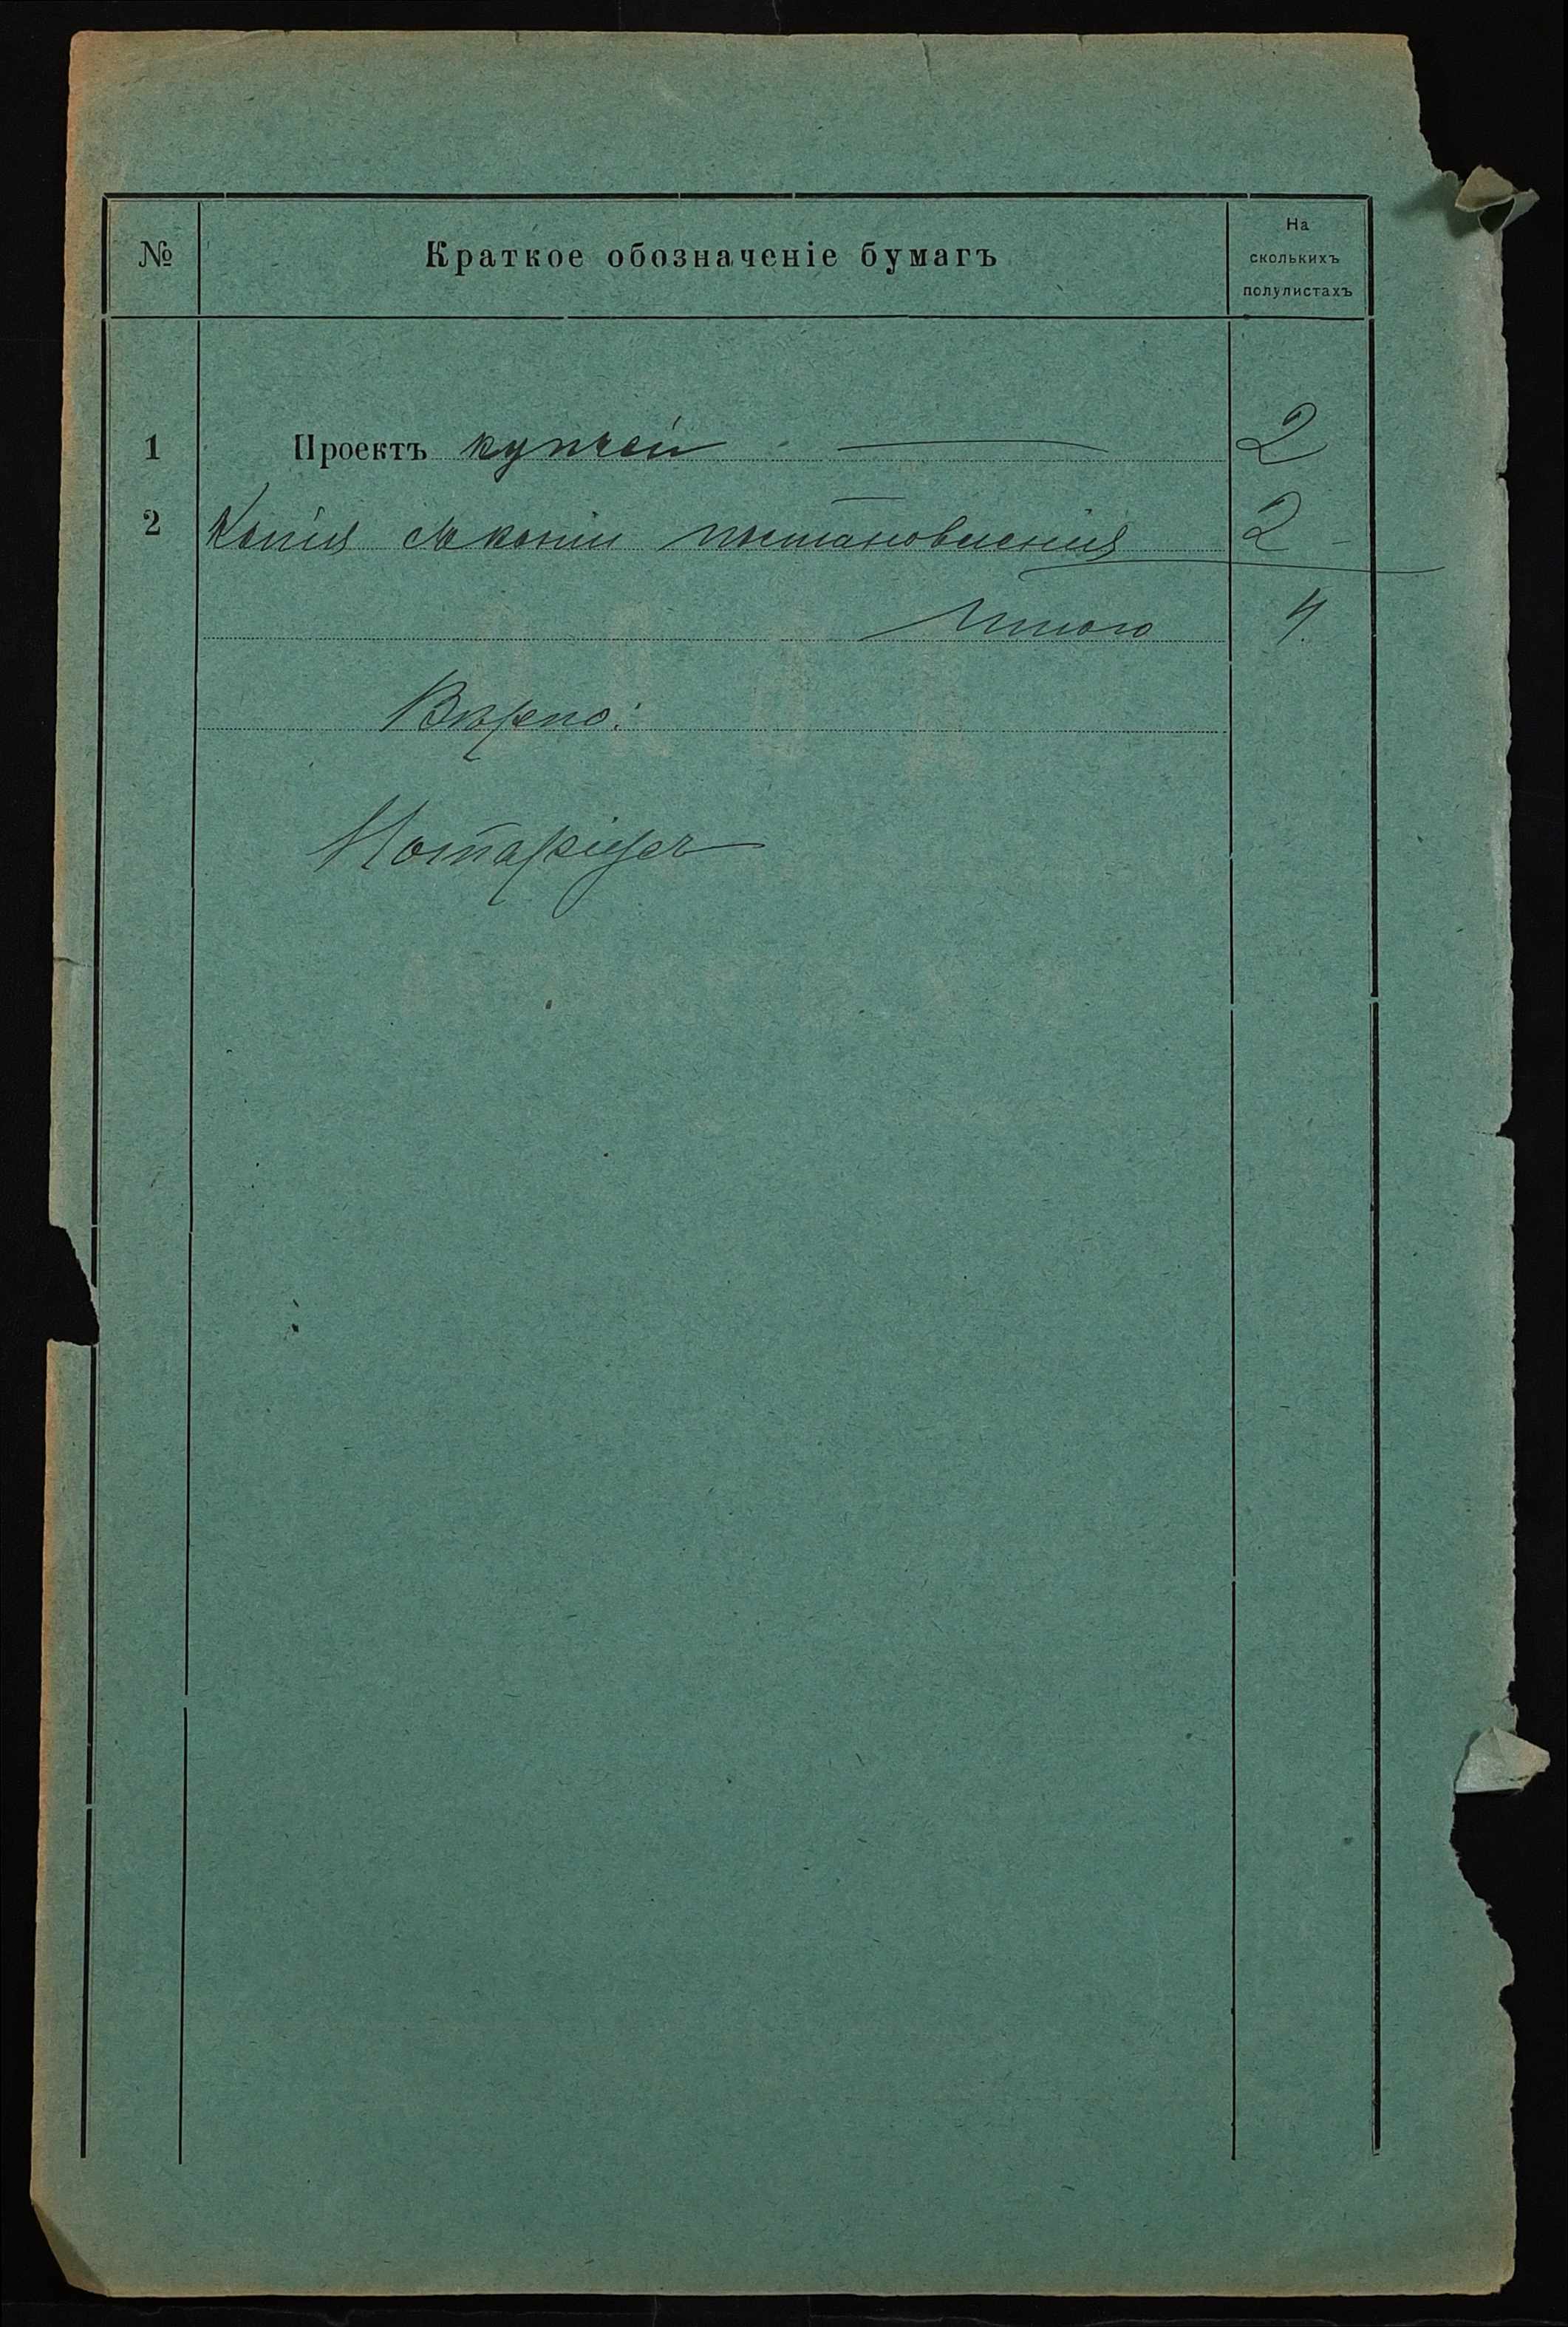 № Краткое обозначеніе бумагъ На сколькихъ полулистахъ
1 Проектъ купчей 2
2 Копія съ копіи постановленія 2
Итого 4.
Вѣрно:
Нотаріусъ